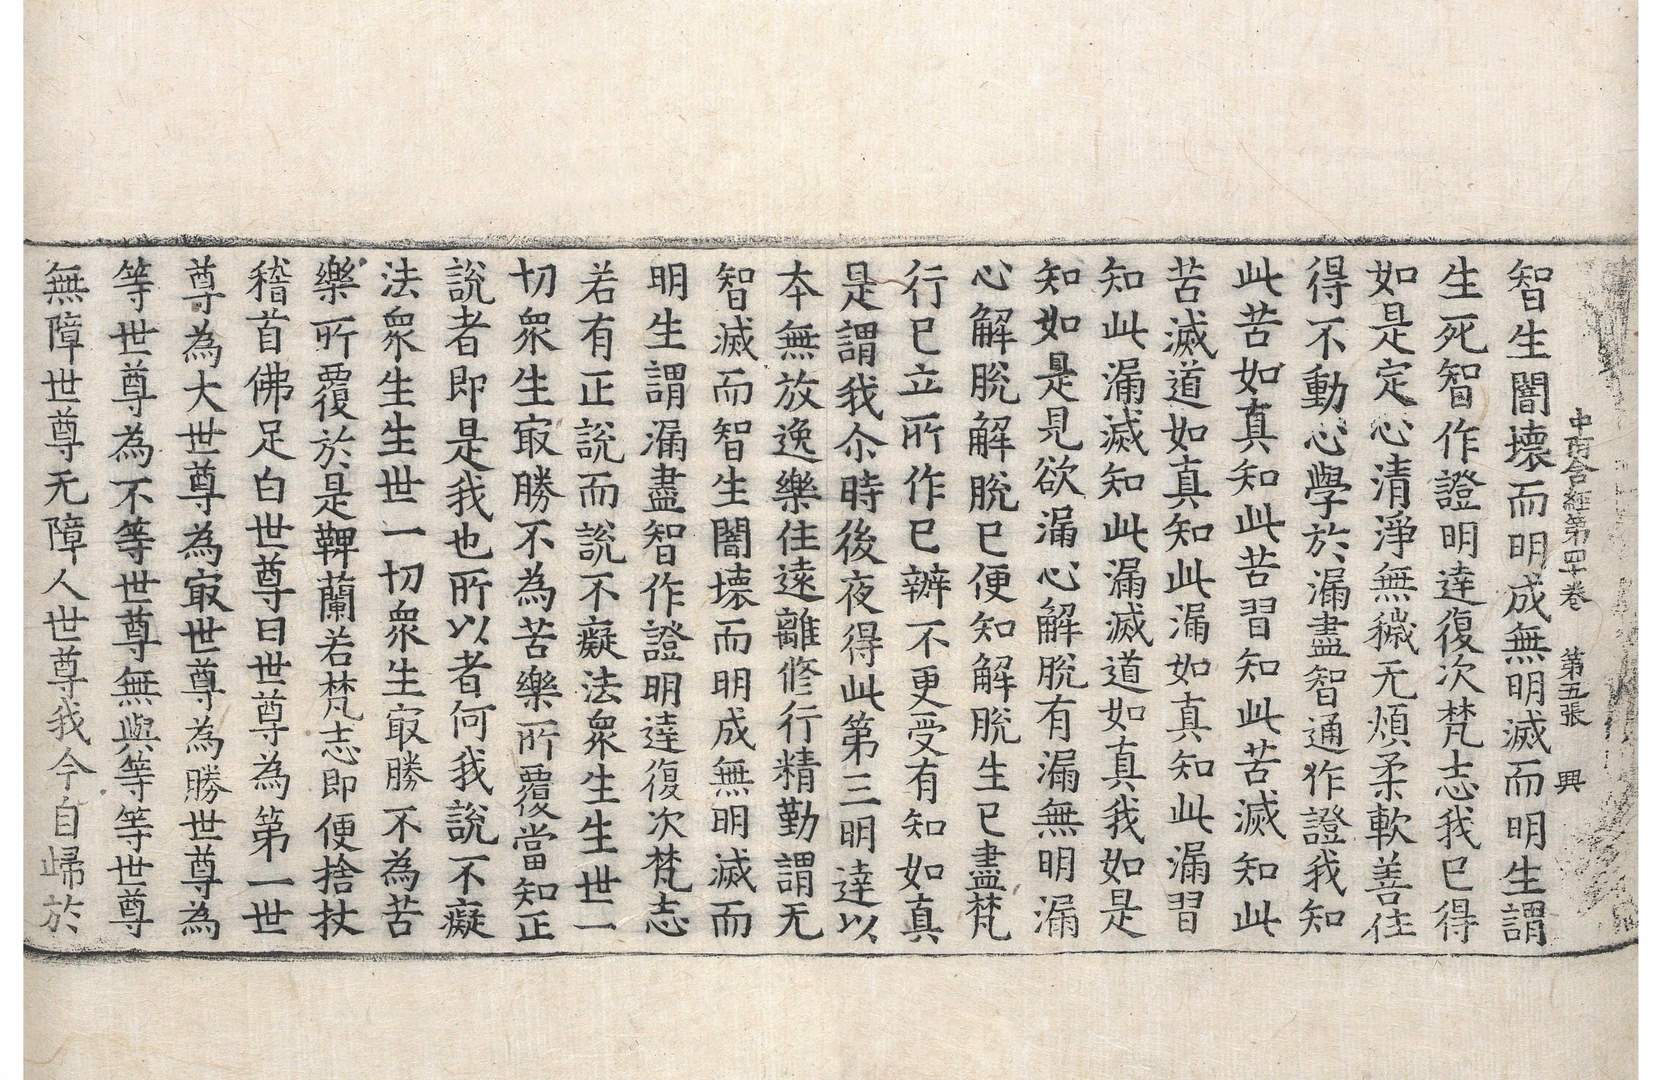 中阿含經第四十卷　第五張　興
智生闇壞而明成無明滅而明生謂
生死智作證明達復次梵志我已得
如是定心清淨無穢无煩柔軟善住
得不動心學於漏盡智通作證我知
此苦如真知此苦習知此苦滅知此
苦滅道如真知此漏如真知此漏習
知此漏滅知此漏滅道如真我如是
知如是見欲漏心解脫有漏無明漏
心解脫解脫已便知解脫生已盡梵
行已立所作已辦不更受有知如真
是謂我尒時後夜得此第三明達以
本無放逸樂住遠離修行精勤謂无
智滅而智生闇壞而明成無明滅而
明生謂漏盡智作證明達復次梵志
若有正說而說不癡法衆生生世一
切衆生㝡勝不為苦樂所覆當知正
說者即是我也所以者何我說不癡
法衆生生世一切衆生㝡勝不為苦
樂所覆於是鞞蘭若梵志即便捨杖
稽首佛足白世尊曰世尊為第一世
尊為大世尊為㝡世尊為勝世尊為
等世尊為不等世尊無與等等世尊
無障世尊无障人世尊我今自歸於